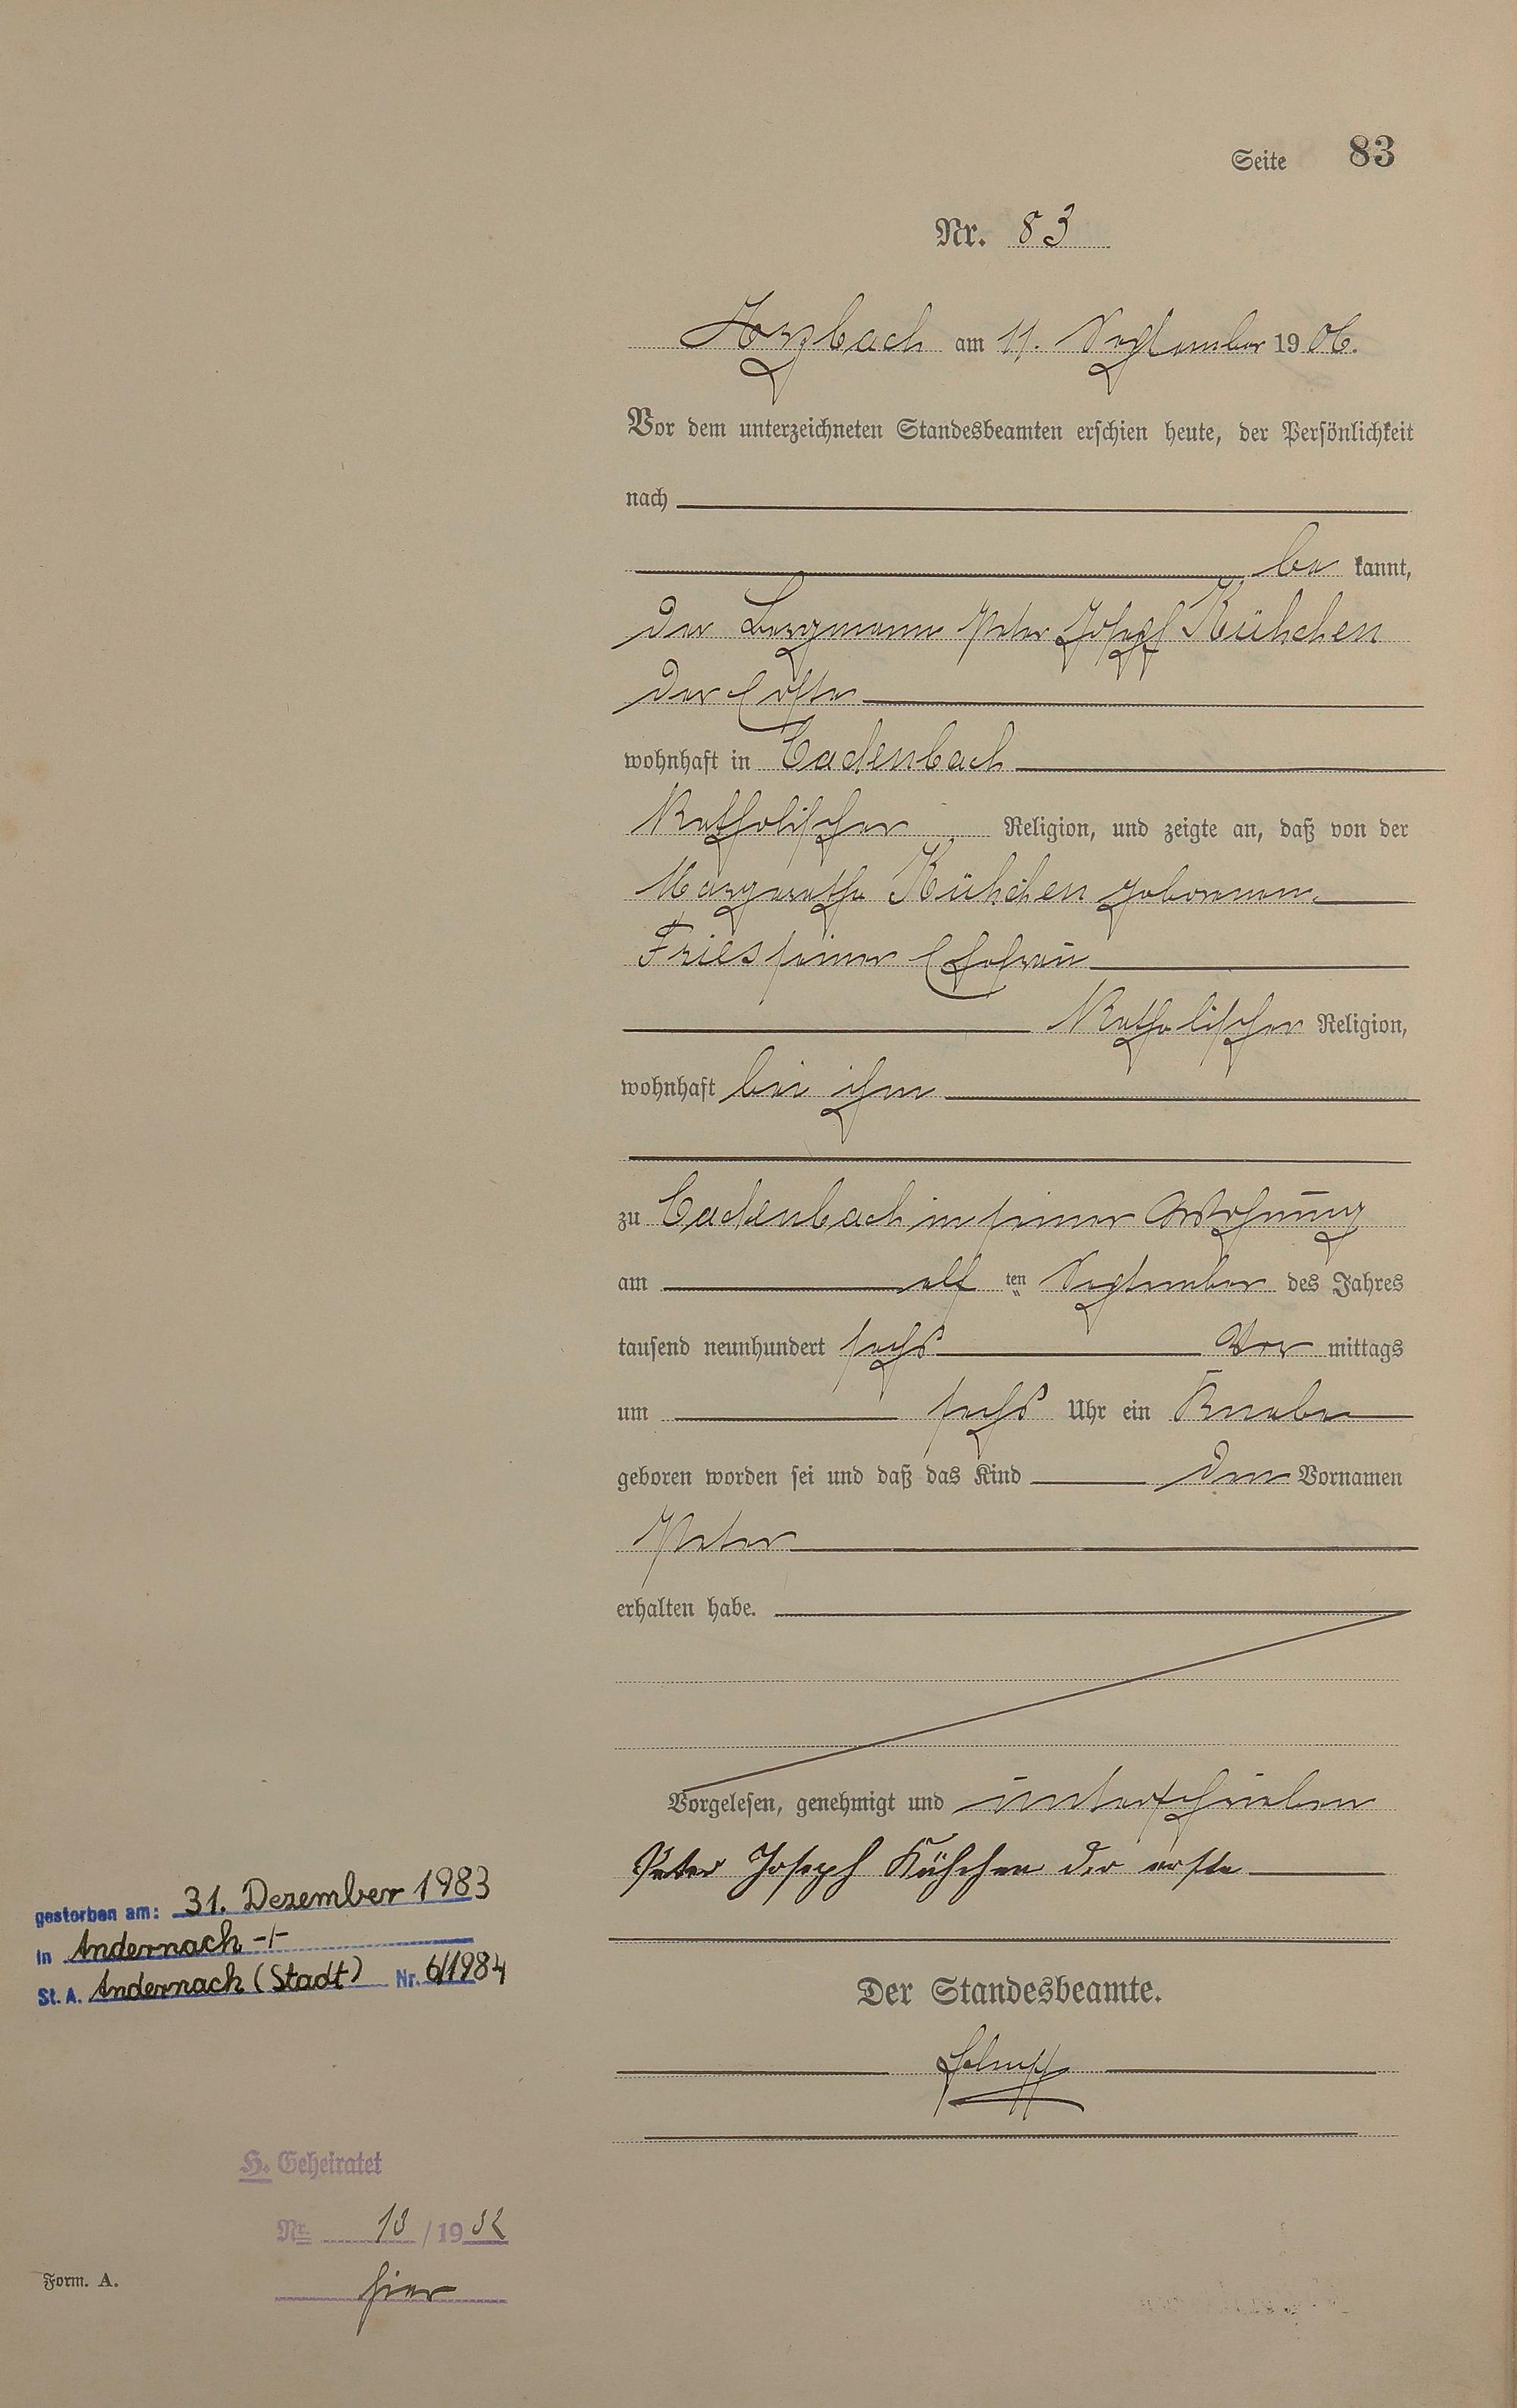 Seite 83
Nr. 83
Arzbach am 11. September 1906.
Vor dem unterzeichneten Standesbeamten erschien heute, der Persönlichkeit
nach
be kannt,
der Bergmann Peter Josef Kühchen
der Erste
wohnhaft in Cadenbach
Katholischer Religion, und zeigte an, daß von der
Margarethe Kühchen geborenen
Fries seiner Ehefrau
Katholischer Religion,
wohnhaft bei ihm
zu Cadenbach in seiner Wohnung
am elf ten September des Jahres
tausend neunhundert sechs Vor mittags
um sechs Uhr ein Knabe
geboren worden sei und daß das Kind den Vornamen
Peter
erhalten habe.
Vorgelesen, genehmigt und unterschrieben
Peter Joseph Kühchen der erste
Der Standesbeamte.
gestorben am: 31. Dezember 1983
in Andernach -/-
St. A. Andernach (Stadt) Nr. 6/1984
H. Geheiratet
Nr. 13 / 1932
hier
Form. A.